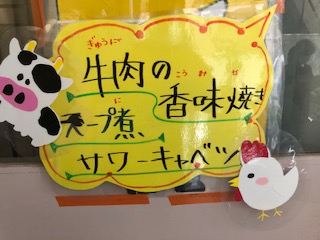 ぎゅうにく
牛肉の
こうみやき
香味焼き
に
スープ煮
サワーキャベツ